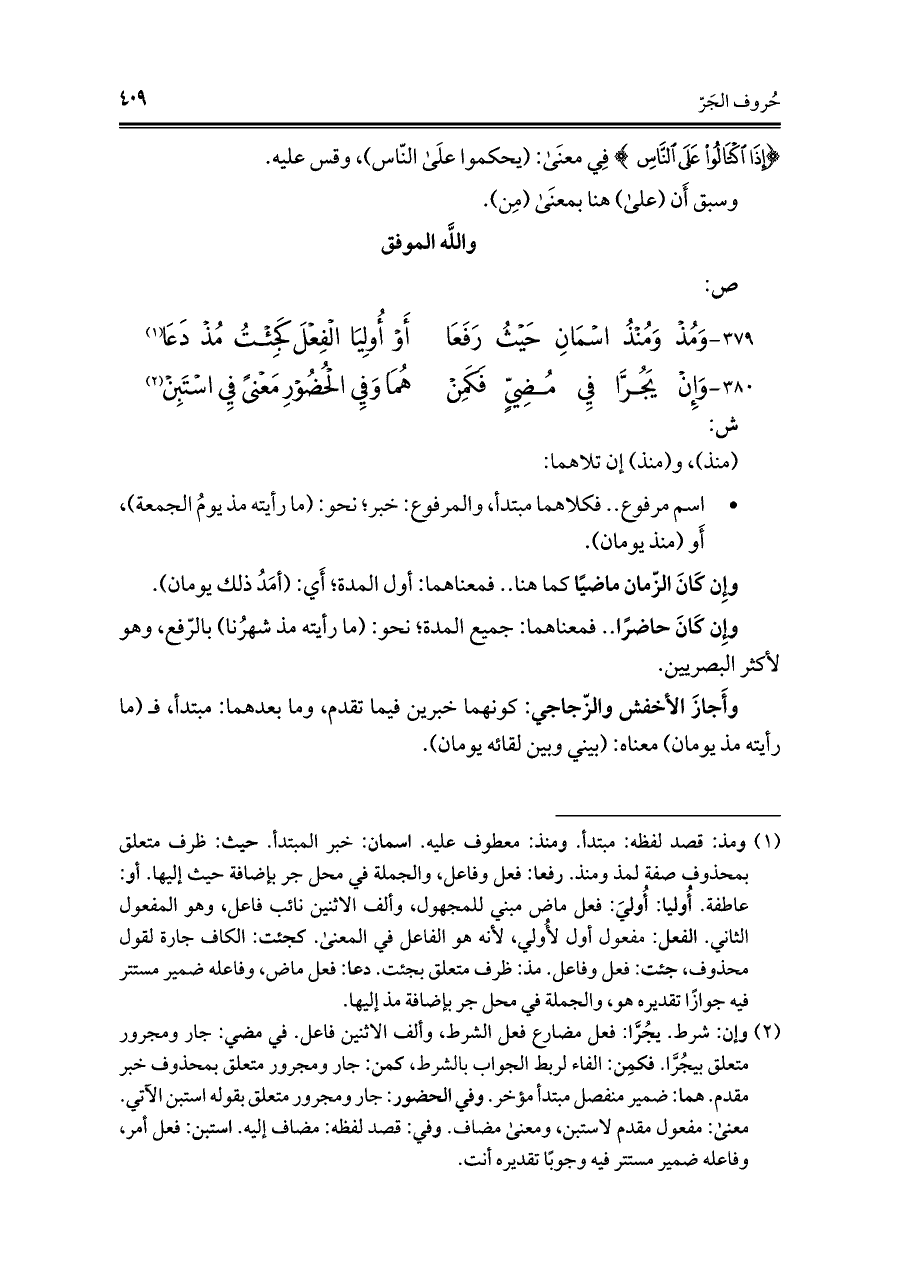 حُروف الجَرّ ٤٠٩
﴿إِذَا ٱكْتَالُوا۟ عَلَى ٱلنَّاسِ﴾ فِي معنَىٰ: (يحكموا علَىٰ النّاس)، وقس عليه.
وسبق أَن (علىٰ) هنا بمعنَىٰ (مِن).
واللَّه الموفق
ص:
٣٧٩-وَمُذْ وَمُنْذُ اسْمَانِ حَيْثُ رَفَعَا أَوْ أُولِيَا الْفِعْلَ كَجِئْتُ مُذْ دَعَا(١)
٣٨٠-وَإِنْ يَجُرَّا فِي مُضِيٍّ فَكَمِنْ هُمَا وَفِي الْحُضُوْرِ مَعْنَىٰ فِي اسْتَبِنْ(٢)
ش:
(منذ)، و(منذ) إن تلاهما:
• اسم مرفوع.. فكلاهما مبتدأ، والمرفوع: خبر؛ نحو: (ما رأيته مذ يومُ الجمعة)،
أَو (منذ يومان).
وإِن كَانَ الزّمان ماضيًا كما هنا.. فمعناهما: أول المدة؛ أَي: (أمَدُ ذلك يومان).
وإِن كَانَ حاضرًا.. فمعناهما: جميع المدة؛ نحو: (ما رأيته مذ شهرُنا) بالرّفع، وهو
لأكثر البصريين.
وأَجازَ الأخفش والزّجاجي: كونهما خبرين فيما تقدم، وما بعدهما: مبتدأ، فـ (ما
رأيته مذ يومان) معناه: (بيني وبين لقائه يومان).
(١) ومذ: قصد لفظه: مبتدأ. ومنذ: معطوف عليه. اسمان: خبر المبتدأ. حيث: ظرف متعلق
بمحذوف صفة لمذ ومنذ. رفعا: فعل وفاعل، والجملة في محل جر بإضافة حيث إليها. أو:
عاطفة. أُوليا: أُوليَ: فعل ماض مبني للمجهول، وألف الاثنين نائب فاعل، وهو المفعول
الثاني. الفعل: مفعول أول لأُولي، لأنه هو الفاعل في المعنىٰ. كجئت: الكاف جارة لقول
محذوف، جئت: فعل وفاعل. مذ: ظرف متعلق بجئت. دعا: فعل ماض، وفاعله ضمير مستتر
فيه جوازًا تقديره هو، والجملة في محل جر بإضافة مذ إليها.
(٢) وإن: شرط. يجُرَّا: فعل مضارع فعل الشرط، وألف الاثنين فاعل. في مضي: جار ومجرور
متعلق بيجُرَّا. فكمِن: الفاء لربط الجواب بالشرط، كمن: جار ومجرور متعلق بمحذوف خبر
مقدم. هما: ضمير منفصل مبتدأ مؤخر. وفي الحضور: جار ومجرور متعلق بقوله استبن الآتي.
معنىٰ: مفعول مقدم لاستبن، ومعنىٰ مضاف. وفي: قصد لفظه: مضاف إليه. استبن: فعل أمر،
وفاعله ضمير مستتر فيه وجوبًا تقديره أنت.